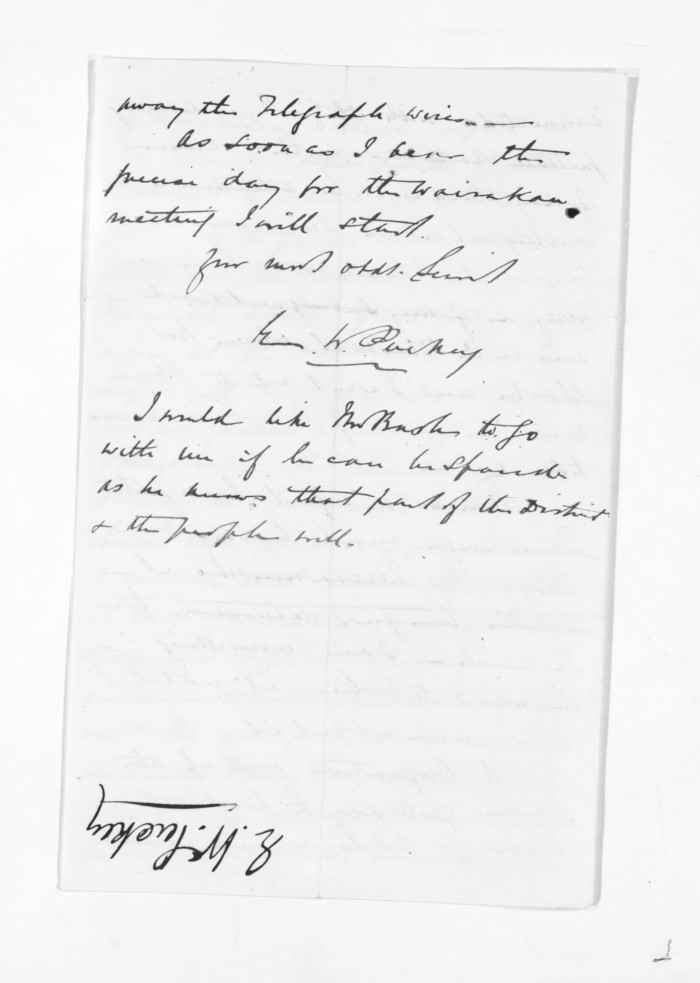 away the Telegraph wires.
As soon as I hear the
precise day for the Wairakau
meeting I will start.
Your most obdt. Servt
E. W. Puckey
I would like Mr Bush to go
with me if he can be spared
as he knows that part of the District
& the people well.
E. W. Puckey